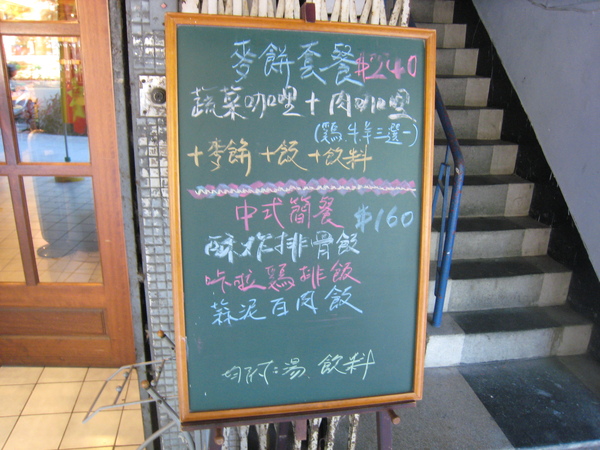 麥餅套餐 $240
蔬菜咖哩+肉咖哩
(鷄牛羊三選一)
+麥餅+飯+飲料
中式簡餐 $160
酥炸排骨飯
咔啦鷄排飯
蒜泥白肉飯
均附:湯.飲料